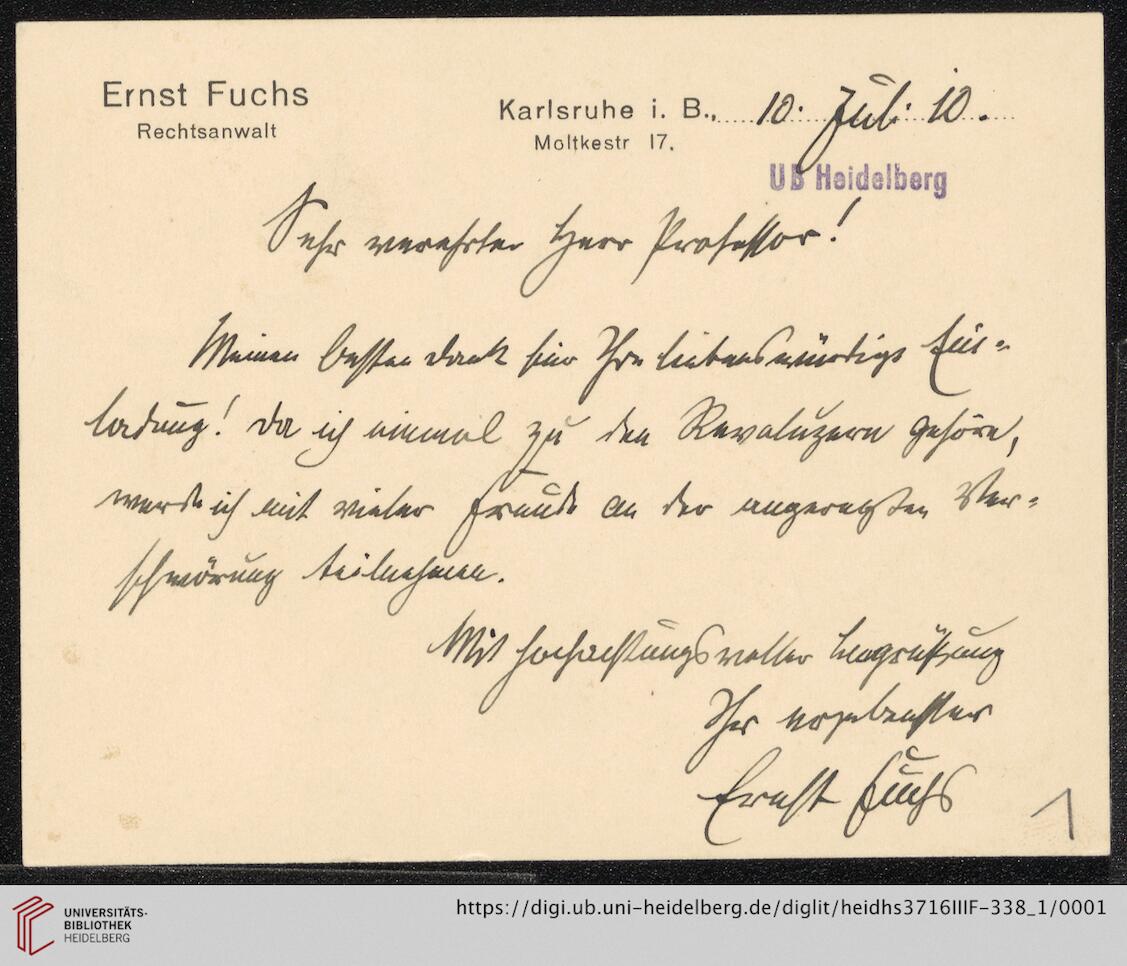 Ernst Fuchs
Rechtsanwalt
Karlsruhe i. B., 10. Juli 10.
Moltkestr 17.
UB Heidelberg
Sehr verehrter Herr Professor!
Meinen besten Dank für Ihre liebenswürdige Ein-
ladung! Da ich einmal zu den Revoluzern gehöre,
werde ich mit vieler Freude an der angeregten Ver-
schwörung teilnehmen.
Mit hochachtungsvoller Begrüßung
Ihr ergebenster
Ernst Fuchs
1
UNIVERSITÄTS-
BIBLIOTHEK
HEIDELBERG
https://digi.ub.uni-heidelberg.de/diglit/heidhs3716IIIF-338_1/0001